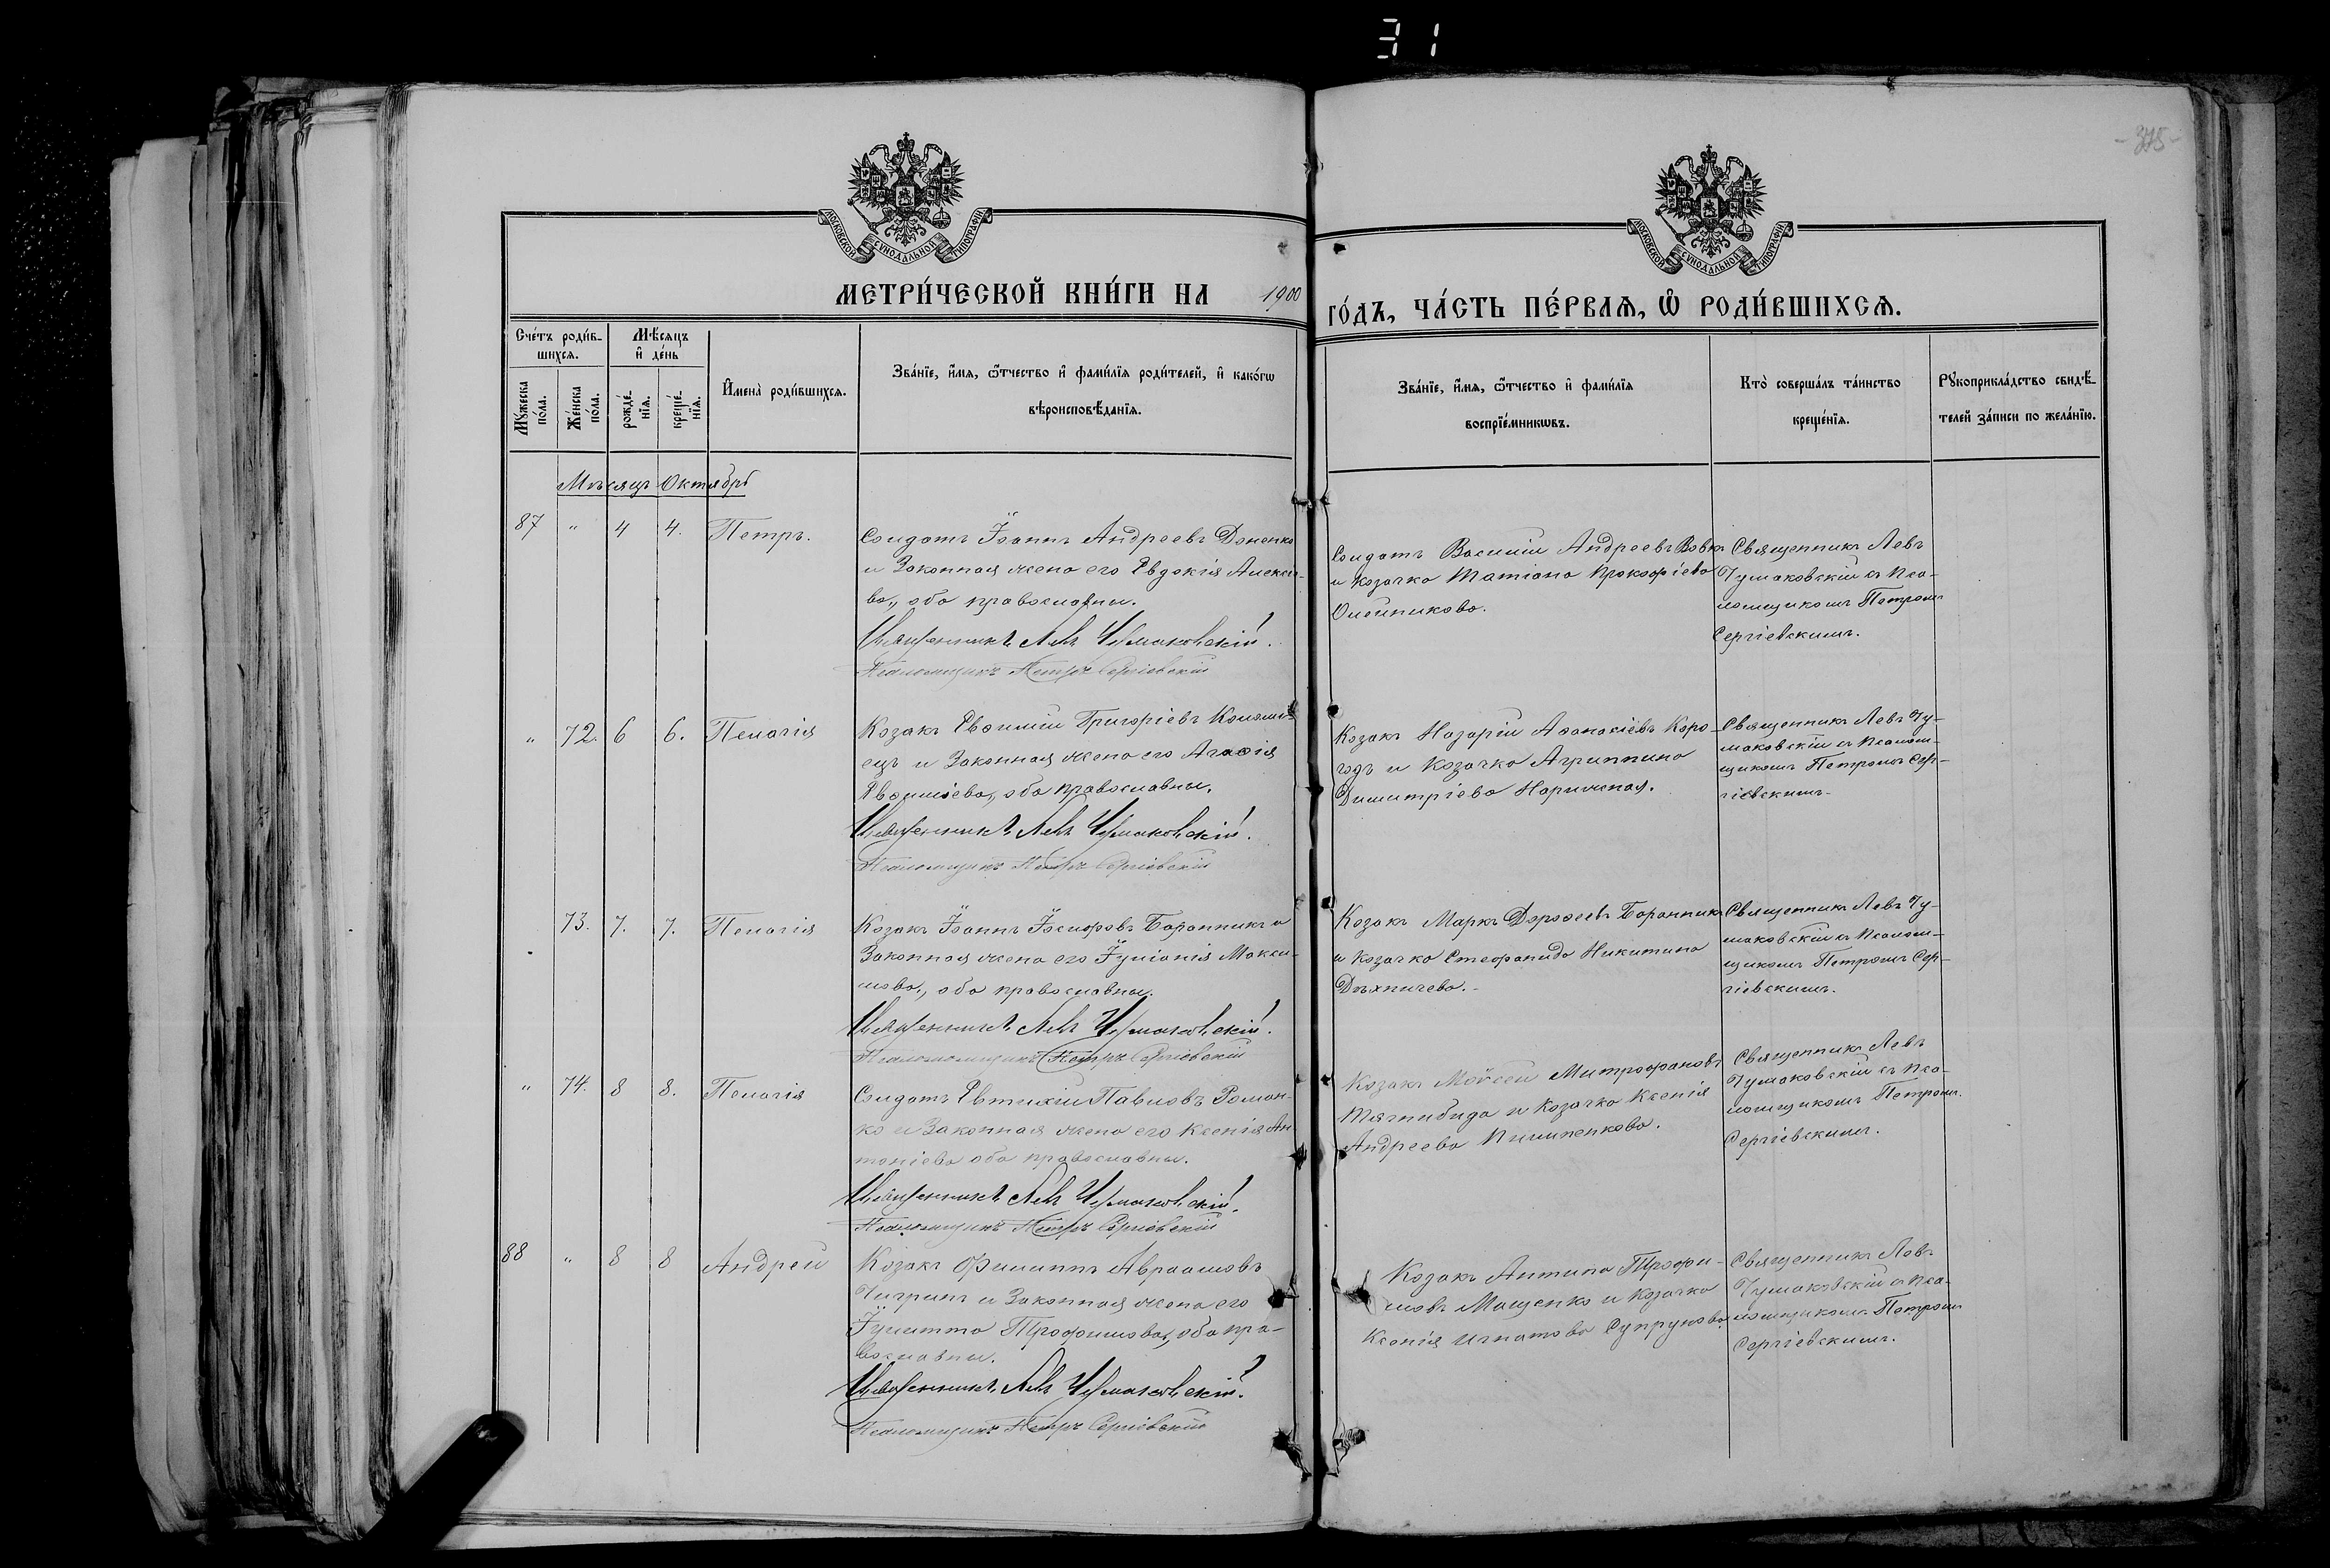 31
-375-
МОСКОВСКОЙ СѴНОДАЛЬНОЙ ТИПОГРАФІИ
МОСКОВСКОЙ СѴНОДАЛЬНОЙ ТИПОГРАФІИ
МЕТРИ́ЧЕСКОЙ КНИ́ГИ НА 1900 ГО́ДЪ, ЧА́СТЬ ПЕ́РВАѦ, Ѽ РОДИ́ВШИХСѦ.
Сче́тъ роди́в-
шихсѧ.
Мѣ́сѧцъ
и҆ де́нь
Мꙋ́жеска
по́ла.
Же́нска
по́ла.
рожде́-
нїѧ.
креще́-
нїѧ.
И҆мена̀ роди́вшихсѧ.
Зва́нїе, и҆́мѧ, ѻ҆́тчество и҆ фами́лїѧ роди́телей, и҆ како́гѡ
вѣроисповѣ́данїѧ.
Зва́нїе, и҆́мѧ, ѻ҆́тчество и҆ фами́лїѧ
воспрїе́мникѡвъ.
Кто̀ соверша́лъ та́инство
креще́нїѧ.
Рꙋкоприкла́дство свидѣ́-
телей за́писи по жела́нїю.
Мѣсяцъ Октябрь
87 " 4 4. Петръ.
Солдатъ Іоаннъ Андреевъ Доненко
и законная жена его Евдокія Алексѣ-
ва, оба православны.
Священникъ Левъ Чумаковскій.
Псаломщикъ Петръ Сергіевскій
Солдатъ Василій Андреевъ Вовкъ
и козачка Татіана Прокофіева
Олейникова.
Священникъ Левъ
Чумаковскій съ пса-
ломщикомъ Петромъ
Сергіевскимъ.
" 72. 6 6. Пелагія
Козакъ Евѳимій Григоріевъ Коломі-
ецъ и законная жена его Агаѳія
Евѳиміева, оба православны.
Священникъ Левъ Чумаковскій.
Псаломщикъ Петръ Сергіевскій
Козакъ Назарій Аѳанасіевъ Коро-
годъ и козачка Агриппина
Димитріева Нарижная.
Священникъ Левъ Чу-
маковскій съ псалом-
щикомъ Петромъ Сер-
гіевскимъ.
73. 7. 7. Пелагія
Козакъ Іоаннъ Іосифовъ Баранникъ и
законная жена его Іуліанія Макси-
мова, оба православны.
Священникъ Левъ Чумаковскій.
Псаломщикъ Петръ Сергіевскій
Козакъ Маркъ Дороѳеевъ Баранникъ
и козачка Стефанида Никитина
Дѣхничева.
Священникъ Левъ Чу-
маковскій съ псалом-
щикомъ Петромъ Сер-
гіевскимъ.
" 74. 8 8. Пелагія
Солдатъ Евтихій Павловъ Роман-
ко и законная жена его Ксенія Ан-
тоніева оба православны.
Священникъ Левъ Чумаковскій.
Псаломщикъ Петръ Сергіевскій
Козакъ Моѵсей Митрофановъ
Тягнибида и козачка Ксенія
Андреева Пилипенкова.
Священникъ Левъ
Чумаковскій съ пса-
ломщикомъ Петромъ
Сергіевскимъ.
88 " 8 8 Андрей
Козакъ Филиппъ Авраамовъ
Чигринъ и законная жена его
Іулитта Трофимова, оба пра-
вославны.
Священникъ Левъ Чумаковскій.
Псаломщикъ Петръ Сергіевскій
Козакъ Антипа Трофи-
мовъ Мащенко и козачка
Ксенія Игнатова Супрунова
Священникъ Левъ
Чумаковскій съ пса-
ломщикомъ Петромъ
Сергіевскимъ.